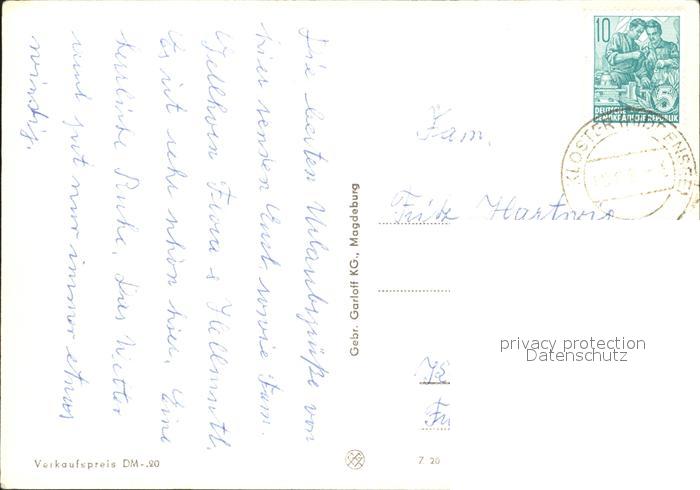 Die besten Urlaubsgrüße von
hier senden Euch sowie Fam.
Frau &
Es ist sehr schön hier. Eine
herrliche Ruhe. Das Wetter
ist nur immer etwas
windig.
Gebr. Garloff KG., Magdeburg
10
5
DEUTSCHE
DEMOKRATISCHE REPUBLIK
KLOSTER
Fam.
Fritz Hartwig
privacy protection
Datenschutz
Verkaufspreis DM-.20
Z 20